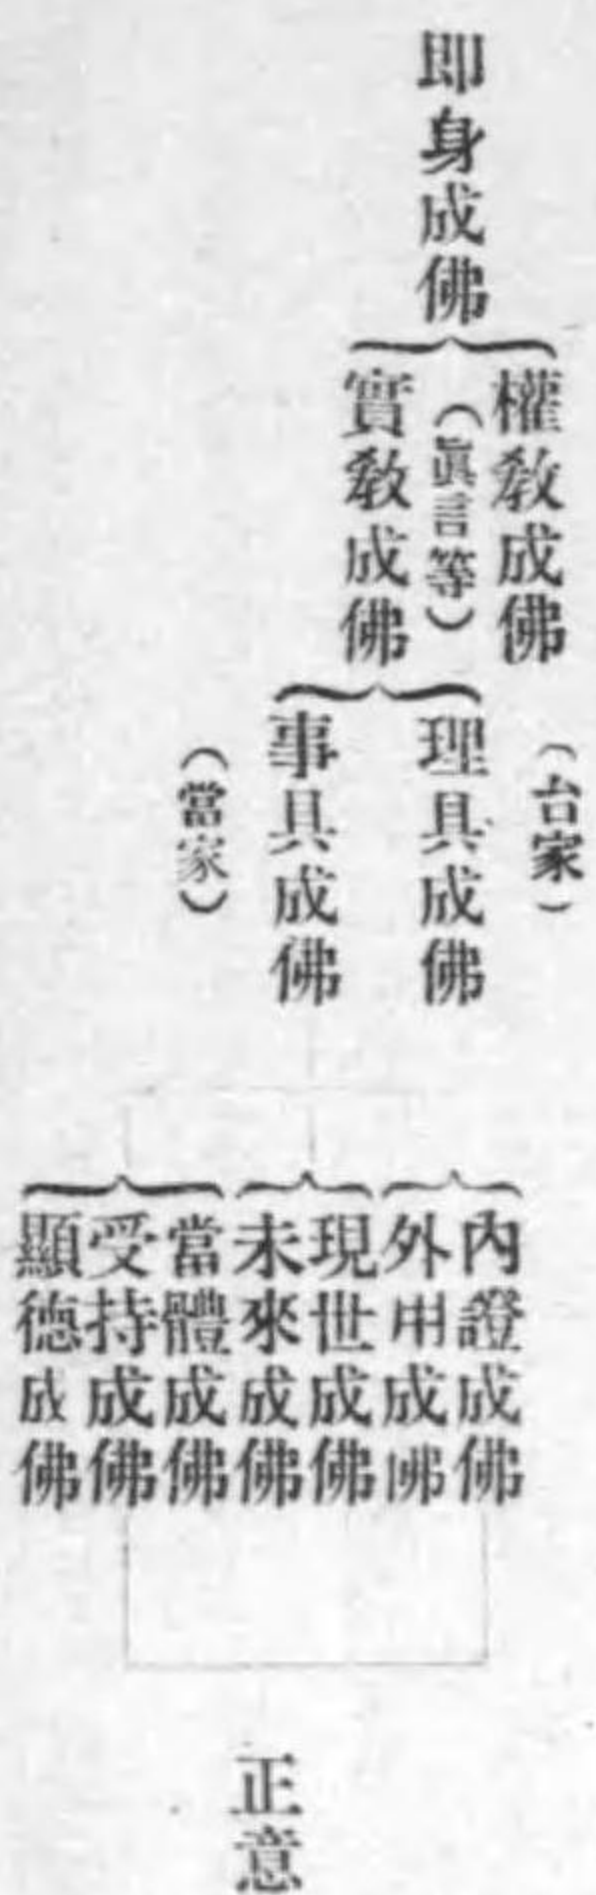 即身成佛
權敎成佛
（眞言等）
實敎成佛
（台家）
理具成佛
事具成佛
（當家）
內證成佛
外用成佛
現世成佛
未來成佛
當體成佛
受持成佛
顯德成佛
正意